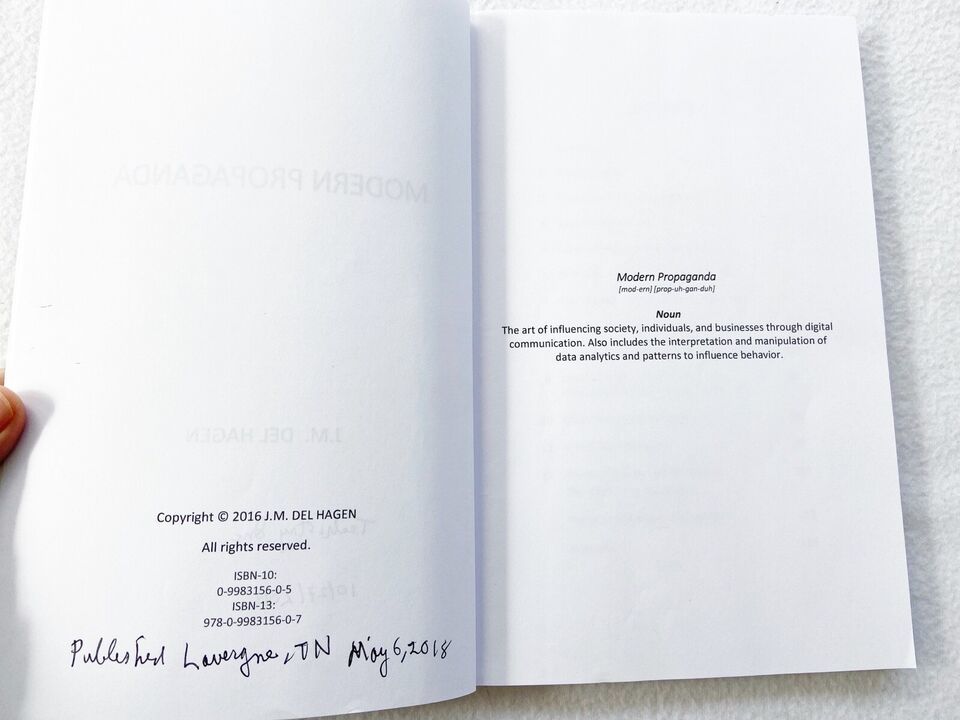 MODERN PROPAGANDA
J.M. DEL HAGEN
Copyright © 2016 J.M. DEL HAGEN
All rights reserved.
ISBN-10:
0-9983156-0-5
ISBN-13:
978-0-9983156-0-7
Published Lavergne, TN May 6, 2018
Modern Propaganda
[mod-ern] [prop-uh-gan-duh]
Noun
The art of influencing society, individuals, and businesses through digital
communication. Also includes the interpretation and manipulation of
data analytics and patterns to influence behavior.